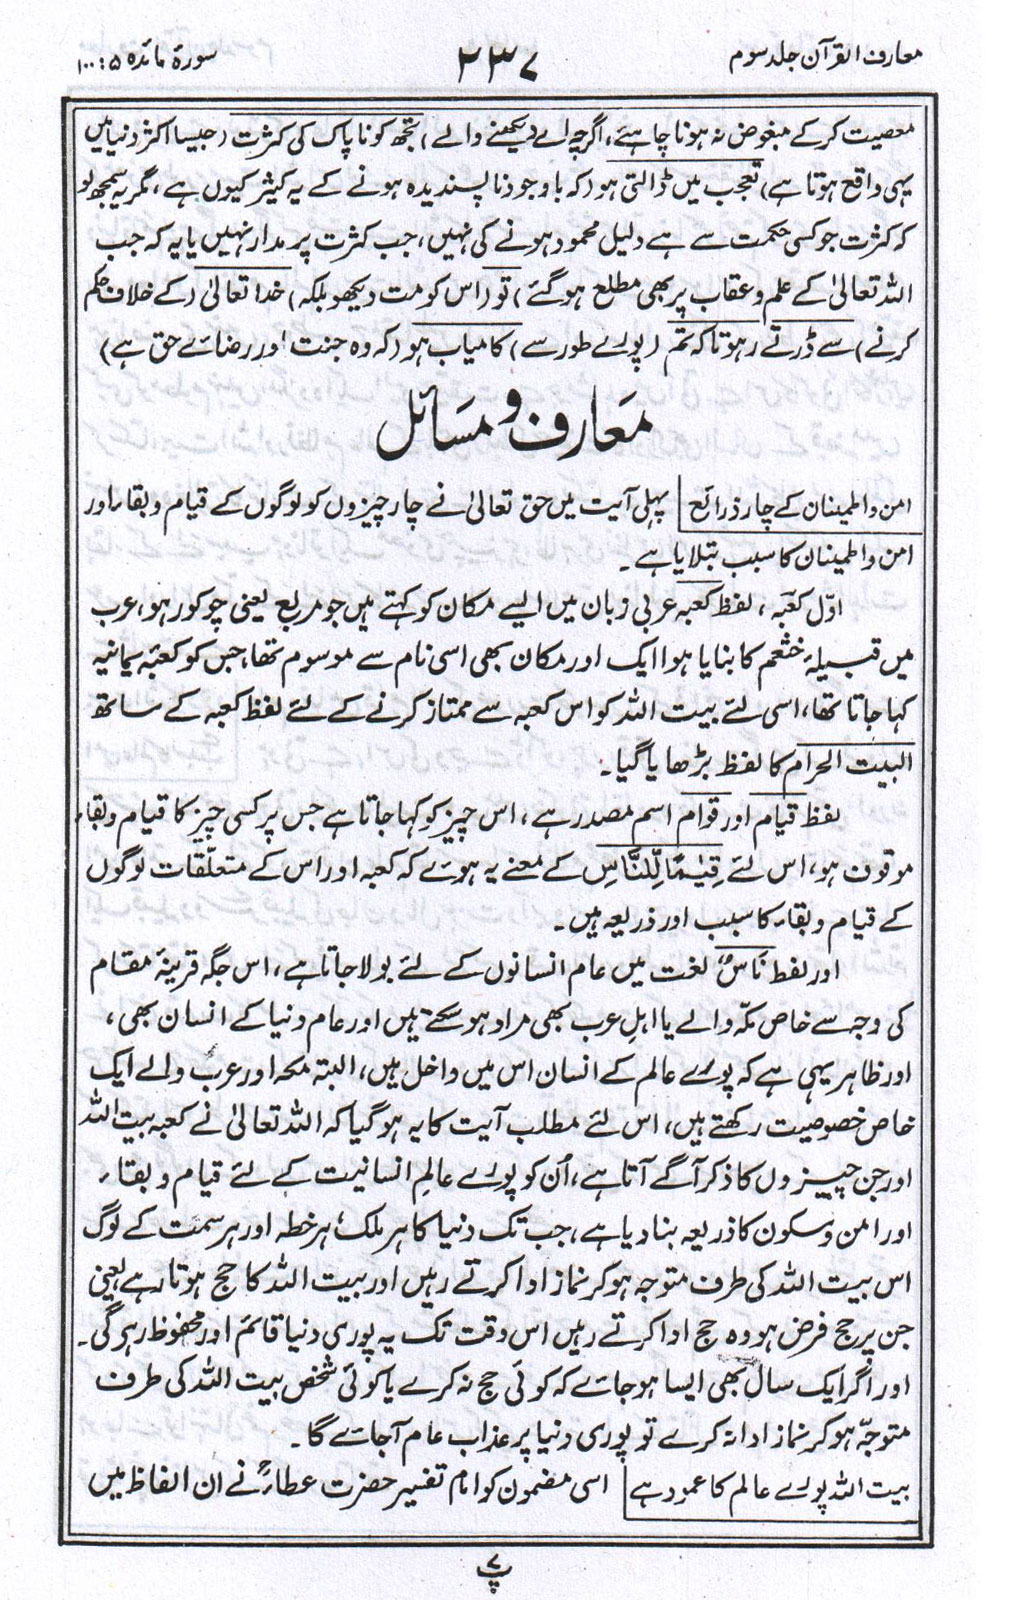 معارف القرآن جلد سوم
۲۳۷
سورۂ مائدہ ۵: ۱۰۰
معصیت کرکے مبغوض نہ ہونا چاہئے، اگرچہ اے دیکھنے والے) تجھ کو ناپاک کی کثرت (جیسا اکثر دنیا میں
یہی واقع ہوتا ہے) تعجب میں ڈالتی ہو (کہ باوجود ناپسندیدہ ہونے کے یہ کثیر کیوں ہے، مگر یہ سمجھ لو
کہ کثرت جو کسی حکمت سے ہے دلیل محمود ہونے کی نہیں، جب کثرت پر مدار نہیں یا یہ کہ جب
اللہ تعالیٰ کے علم و عقاب پر بھی مطلع ہوگئے) تو (اس کو مت دیکھو بلکہ) خدا تعالیٰ (کے خلاف حکم
کرنے) سے ڈرتے رہو تاکہ تم (پورے طور سے) کامیاب ہو (کہ وہ جنت اور رضائے حق ہے)
معارف و مسائل
امن و اطمینان کے چار ذرائع پہلی آیت میں حق تعالیٰ نے چار چیزوں کو لوگوں کے قیام و بقاء اور
امن و اطمینان کا سبب بتلایا ہے۔
اوّل کعبہ، لفظ کعبہ عربی زبان میں ایسے مکان کو کہتے ہیں جو مربع یعنی چوکور ہو، عرب
میں قبیلۂ خثعم کا بنایا ہوا ایک اور مکان بھی اسی نام سے موسوم تھا، جس کو کعبۂ یمانیہ
کہا جاتا تھا، اسی لئے بیت اللہ کو اس کعبہ سے ممتاز کرنے کے لئے لفظ کعبہ کے ساتھ
البیت الحرام کا لفظ بڑھایا گیا۔
لفظ قیام اور قوام اسم مصدر ہے، اس چیز کو کہا جاتا ہے جس پر کسی چیز کا قیام و بقاء
موقوف ہو، اس لئے قِیٰمًا لِّلنَّاسِ کے معنے یہ ہوئے کہ کعبہ اور اس کے متعلّقات لوگوں
کے قیام و بقاء کا سبب اور ذریعہ ہیں۔
اور لفظ نَاسٌ لغت میں عام انسانوں کے لئے بولا جاتا ہے، اس جگہ قرینۂ مقام
کی وجہ سے خاص مکّہ والے یا اہلِ عرب بھی مراد ہو سکتے ہیں اور عام دنیا کے انسان بھی،
اور ظاہر یہی ہے کہ پورے عالم کے انسان اس میں داخل ہیں، البتہ مکہ اور عرب والے ایک
خاص خصوصیت رکھتے ہیں، اس لئے مطلب آیت کا یہ ہوگیا کہ اللہ تعالیٰ نے کعبہ بیت اللہ
اور جن چیزوں کا ذکر آگے آتا ہے، اُن کو پورے عالمِ انسانیت کے لئے قیام و بقاء
اور امن و سکون کا ذریعہ بنا دیا ہے، جب تک دنیا کا ہر ملک، ہر خطہ اور ہر سمت کے لوگ
اس بیت اللہ کی طرف متوجہ ہو کر نماز ادا کرتے رہیں اور بیت اللہ کا حج ہوتا رہے یعنی
جن پر حج فرض ہو وہ حج ادا کرتے رہیں اس وقت تک یہ پوری دنیا قائم اور محفوظ رہے گی۔
اور اگر ایک سال بھی ایسا ہو جائے کہ کوئی حج نہ کرے یا کوئی شخص بیت اللہ کی طرف
متوجّہ ہو کر نماز ادا نہ کرے تو پوری دنیا پر عذاب عام آجائے گا۔
بیت اللہ پورے عالم کا عمود ہے اسی مضمون کو امام تفسیر حضرت عطاءؒ نے ان الفاظ میں
پ ۷